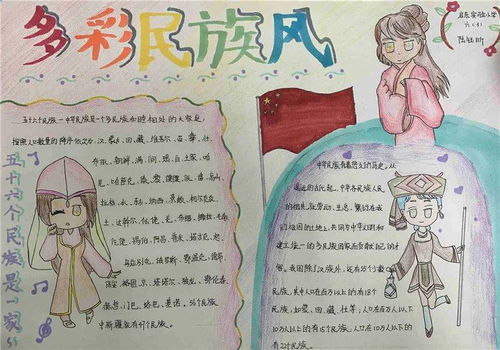 多彩民族风
启东实验小学
五十六个民族是一家
五十六个民族一家
中华民族是一个多民族和睦相处的大家庭,
按照人口数量的降序依次为:汉、壮、回、藏、维吾尔、苗、彝、壮、
布依、朝鲜、满、侗、瑶、白、土家、哈
尼、哈萨克、傣、黎、傈僳、佤、畲、高山、
拉祜、水、东乡、纳西、景颇、柯尔克孜、
土、达斡尔、仫佬、羌、布朗、撒拉、毛南、
仡佬、锡伯、阿昌、普米、塔吉克、怒、
乌孜别克、俄罗斯、鄂温克、德昂、
保安、裕固、京、塔塔尔、独龙、鄂伦春、
赫哲、门巴、珞巴、基诺。56个民族
中华民族有着悠久的历史。从
遥远的古代起,中华各民族人民
的祖先就劳动、生息、繁衍在我
们祖国的土地上,共同为中华文明和
建立统一的多民族国家而贡献自己的才
智。我国除了汉族外,还有55个少数
民族,其中人口在百万以上的有18个
民族,如蒙、回、藏、壮等;人口在百万以下
10万人以上的有15个民族;人口在10万人以下的
有22个民族。